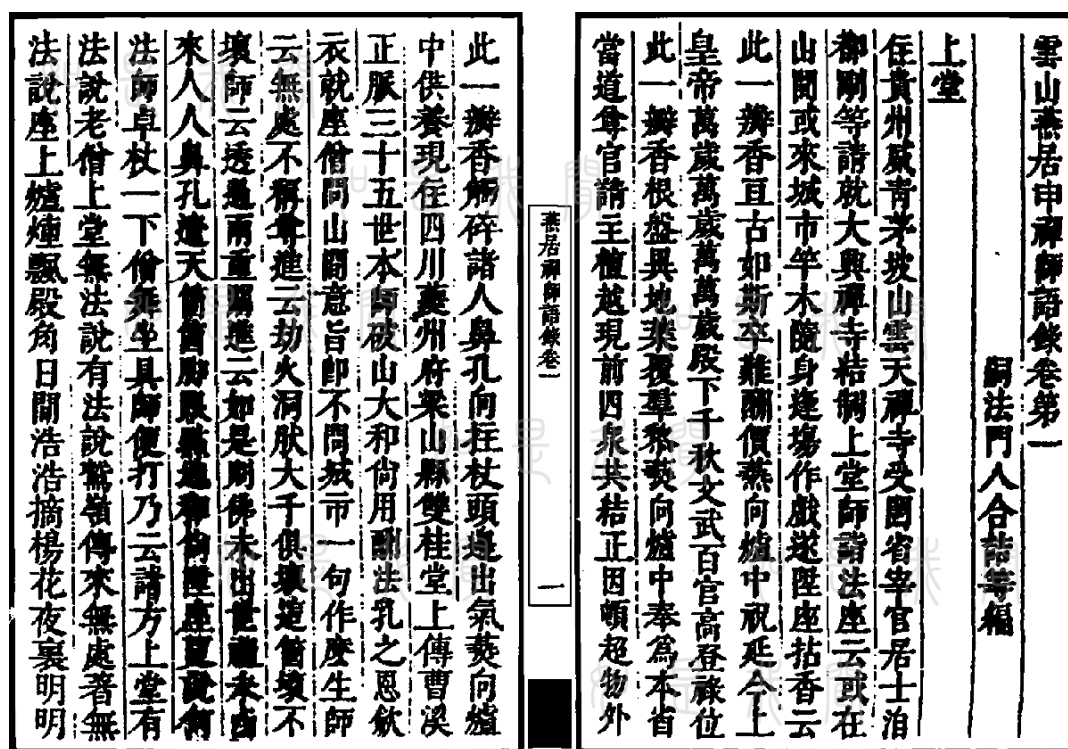 雲山燕居申禪師語錄卷第一
嗣法門人合詰等編
上堂
住貴州威青茅坡山雲天禪寺受闔省宰官居士洎
剛等請就大興禪寺結制上堂師詣法座云或在
山間或來城市竿木隨身逢塲作戲遂陞座拈香云
此一瓣香亘古如斯卒難酬價爇向爐中祝延今上
皇帝萬歲萬歲萬萬歲殿下千秋文武百官高登祿位
此一瓣香根盤異地葉覆羣黎爇向爐中奉爲本省
當道尊官請主檀越現前四衆共結正因頓超物外
燕居禪師語錄卷一
一
此一瓣香觸碎諸人鼻孔向拄杖頭邊出氣爇向爐
中供養現在四川夔州府梁山縣雙桂堂上傳曹溪
正脈三十五世本師破山大和尚用酬法乳之恩斂
衣就座僧問山間意旨卽不問城市一句作麽生師
云無處不稱尊進云劫火洞肰大千俱壞這箇壞不
壞師云透過兩重關進云如是則佛未出世祖未西
來人人鼻孔遼天箇箇脚跟點地和尚陞座要說何
法師卓杖一下僧無坐具師便打乃云諸方上堂有
法說老僧上堂無法說有法說鷲嶺傳來無處著無
法說座上爐煙飄殿角日間浩浩摘楊花夜裏明明